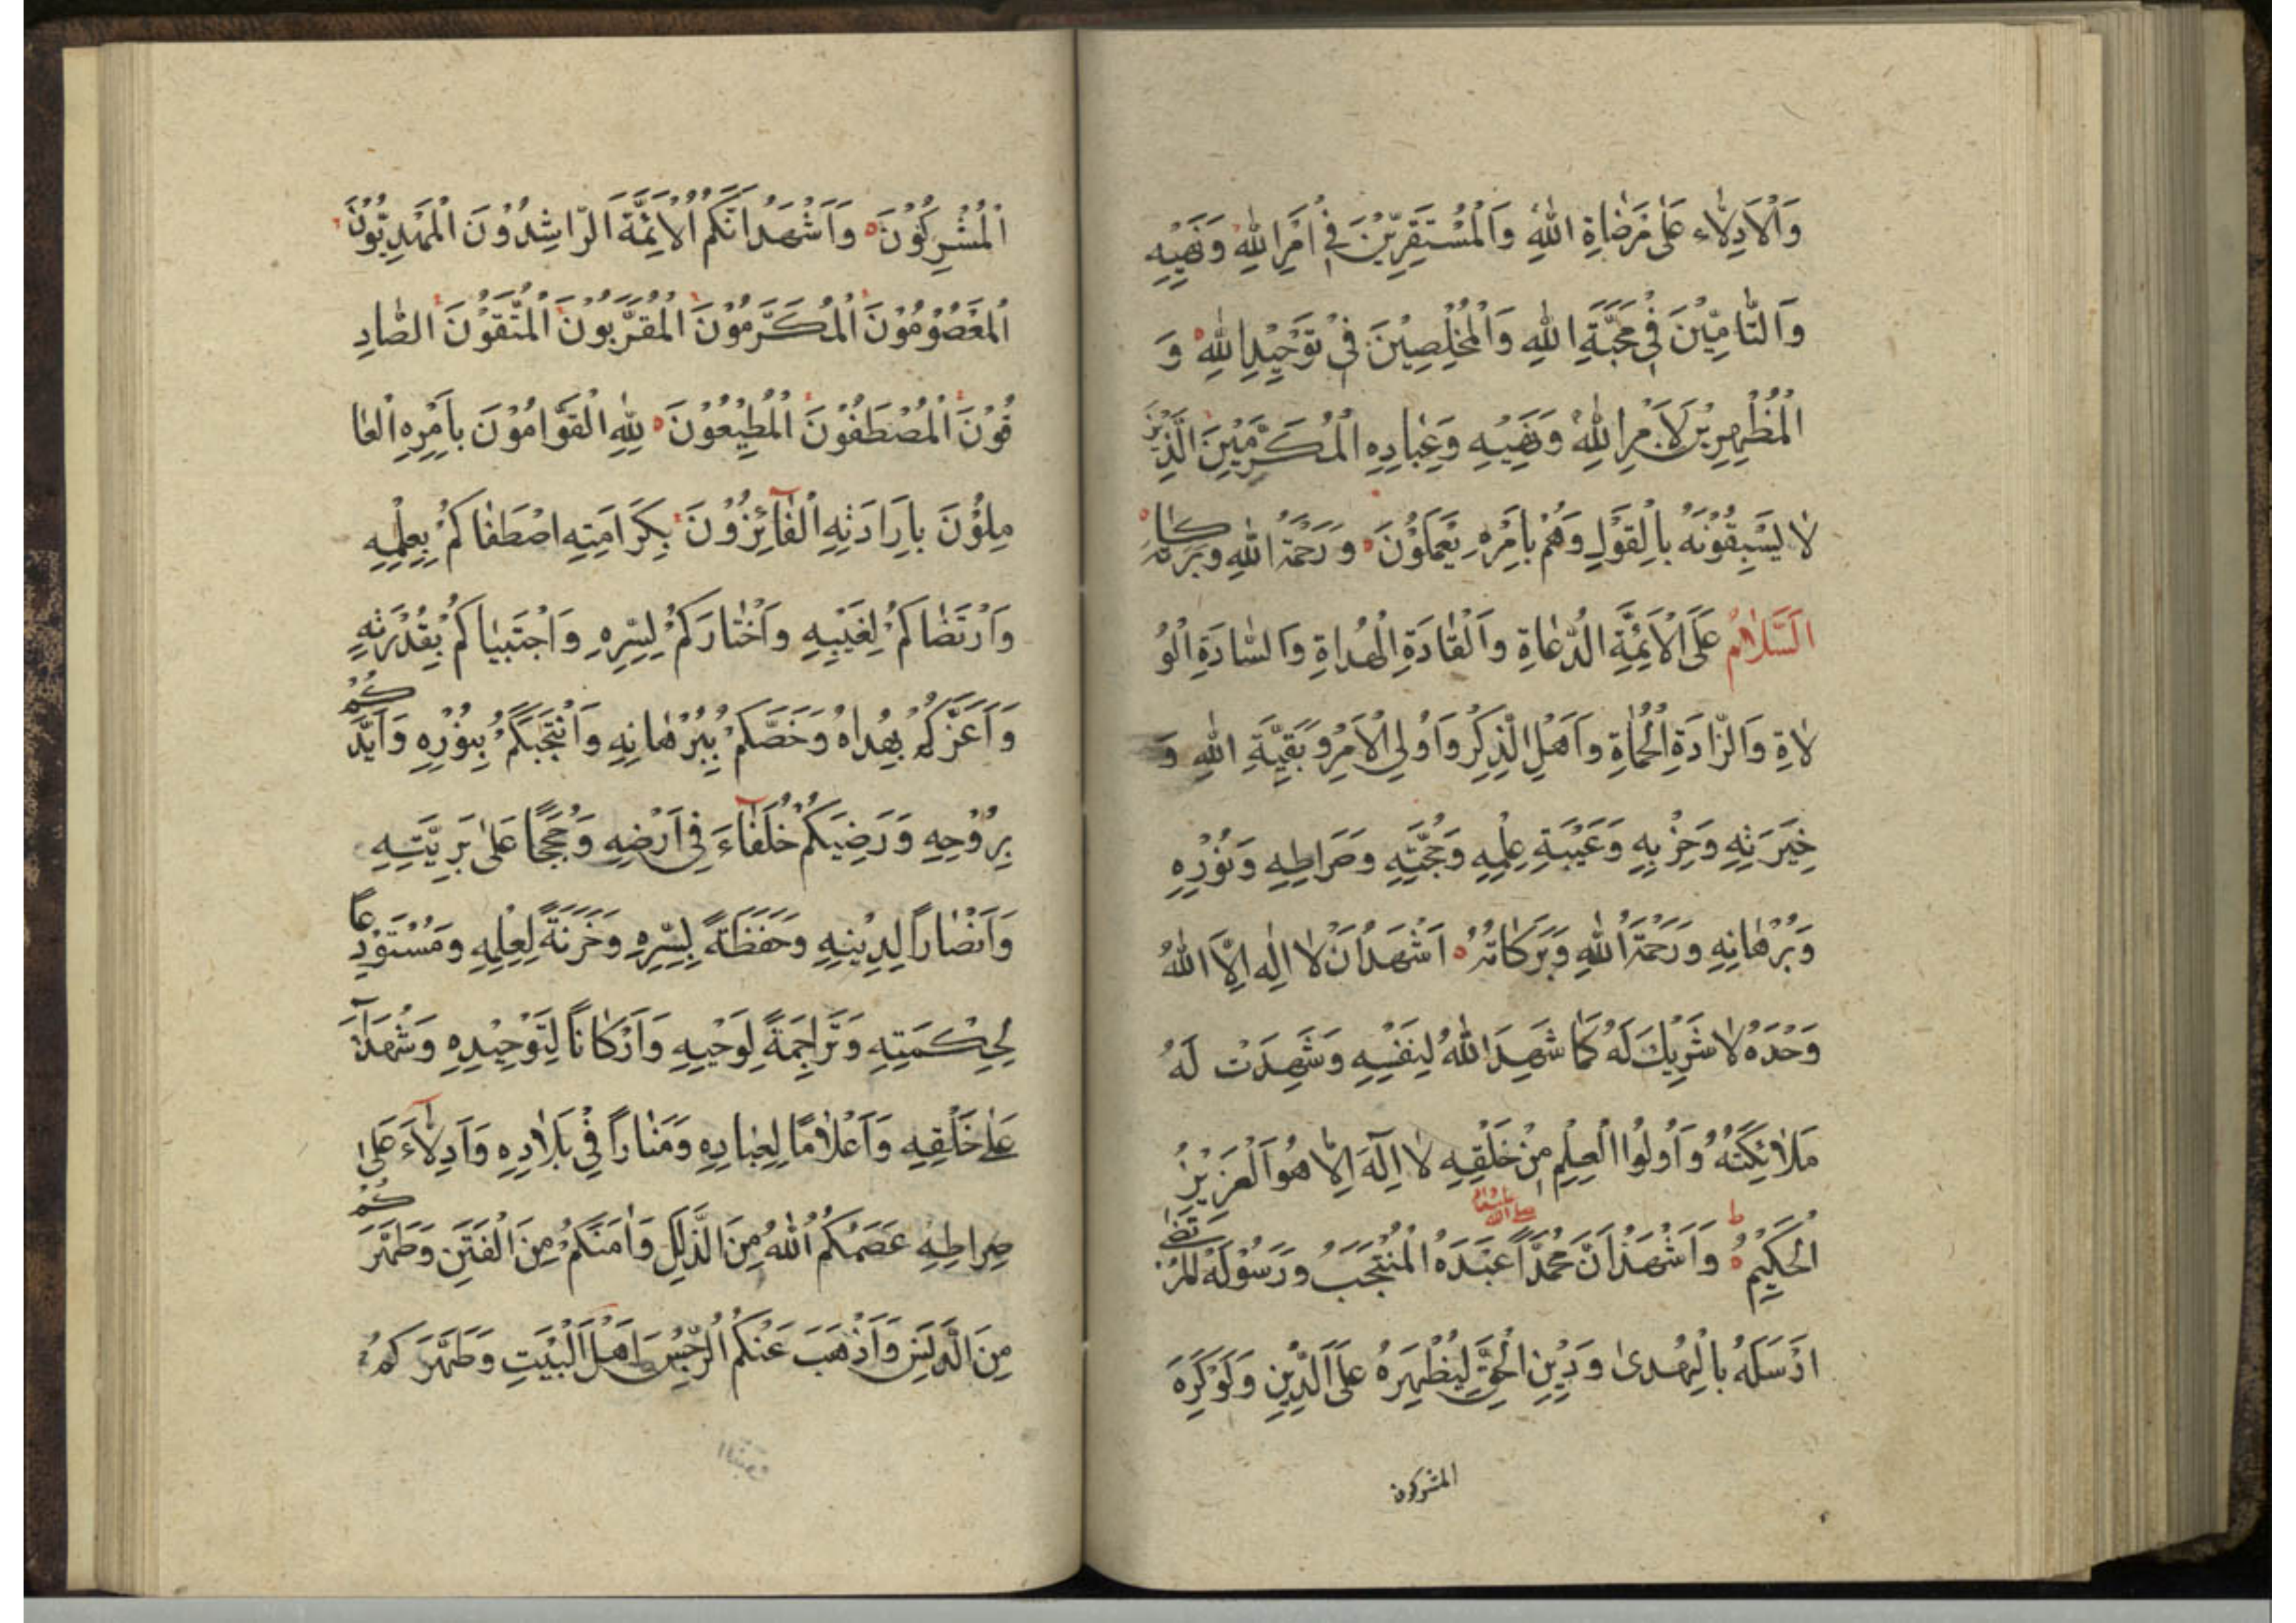 وَالْاَدِلّاءِ عَلٰى مَرْضَاةِ اللّٰهِ وَالْمُسْتَقِرّيْنَ فِيْ اَمْرِ اللّٰهِ وَنَهْيِهِ
وَالتّامّيْنَ فِيْ مَحَبَّةِ اللّٰهِ وَالْمُخْلِصِيْنَ فِيْ تَوْحِيْدِ اللّٰهِ وَ
الْمُظْهِرِيْنَ لِاَمْرِ اللّٰهِ وَنَهْيِهِ وَعِبادِهِ الْمُكَرَّمِيْنَ الَّذِيْنَ
لا يَسْبِقُوْنَهُ بِالْقَوْلِ وَهُمْ بِاَمْرِهِ يَعْمَلُوْنَ وَرَحْمَةُ اللّٰهِ وَبَرَكاتُهُ
اَلسَّلامُ عَلَى الْاَئِمَّةِ الدُّعاةِ وَالْقادَةِ الْهُداةِ وَالسّادَةِ الْوُ
لاةِ وَالزّادَةِ الْحُماةِ وَاَهْلِ الذِّكْرِ وَاُولِي الْاَمْرِ وَبَقِيَّةِ اللّٰهِ وَ
خِيَرَتِهِ وَحِزْبِهِ وَعَيْبَةِ عِلْمِهِ وَحُجَّتِهِ وَصِراطِهِ وَنُوْرِهِ
وَبُرْهانِهِ وَرَحْمَةُ اللّٰهِ وَبَرَكاتُهُ اَشْهَدُ اَنْ لا اِلٰهَ اِلَّا اللّٰهُ
وَحْدَهُ لا شَرِيْكَ لَهُ كَما شَهِدَ اللّٰهُ لِنَفْسِهِ وَشَهِدَتْ لَهُ
مَلائِكَتُهُ وَاُولُوا الْعِلْمِ مِنْ خَلْقِهِ لا اِلٰهَ اِلّا هُوَ الْعَزِيْزُ
الْحَكِيْمُ وَاَشْهَدُ اَنَّ مُحَمَّداً عَبْدَهُ الْمُنْتَجَبُ وَرَسُوْلَهُ الْمُرْتَضٰى
اَرْسَلَهُ بِالْهُدىٰ وَدِيْنِ الْحَقِّ لِيُظْهِرَهُ عَلَى الدِّيْنِ وَلَوْ كَرِهَ
المشركون
الْمُشْرِكُوْنَ وَاَشْهَدُ اَنَّكُمُ الْاَئِمَّةُ الرّاشِدُوْنَ الْمَهْدِيُّوْنَ
الْمَعْصُوْمُوْنَ الْمُكَرَّمُوْنَ الْمُقَرَّبُوْنَ الْمُتَّقُوْنَ الصّادِ
قُوْنَ الْمُصْطَفُوْنَ الْمُطِيْعُوْنَ لِلّٰهِ الْقَوّامُوْنَ بِاَمْرِهِ الْعا
مِلُوْنَ بِاِرادَتِهِ الْفآئِزُوْنَ بِكَرامَتِهِ اصْطَفاكُمْ بِعِلْمِهِ
وَارْتَضاكُمْ لِغَيْبِهِ وَاخْتارَكُمْ لِسِرِّهِ وَاجْتَبياكُمْ بِقُدْرَتِهِ
وَاَعَزَّكُمْ بِهُداهُ وَخَصَّكُمْ بِبُرْهانِهِ وَانْتَجَبَكُمْ بِنُوْرِهِ وَاَيَّدَكُمْ
بِرُوْحِهِ وَرَضِيَكُمْ خُلَفآءَ فِيْ اَرْضِهِ وَحُجَجًا عَلىٰ بَرِيَّتِهِ
وَاَنْصاراً لِدِيْنِهِ وَحَفَظَةً لِسِرِّهِ وَخَزَنَةً لِعِلْمِهِ وَمُسْتَوْدِعاً
لِحِكْمَتِهِ وَتَراجِمَةً لِوَحْيِهِ وَاَرْكاناً لِتَوْحِيْدِهِ وَشُهَدآءَ
عَلٰى خَلْقِهِ وَاَعْلامًا لِعِبادِهِ وَمَناراً فِيْ بَلادِهِ وَاَدِلّآءَ عَلىٰ
صِراطِهِ عَصَمَكُمُ اللّٰهُ مِنَ الذَّلَلِ وَاٰمَنَكُمْ مِنَ الْفِتَنِ وَطَهَّرَكُمْ
مِنَ الدَّنَسِ وَاَذْهَبَ عَنْكُمُ الرِّجْسَ اَهْلَ الْبَيْتِ وَطَهَّرَكُمْ